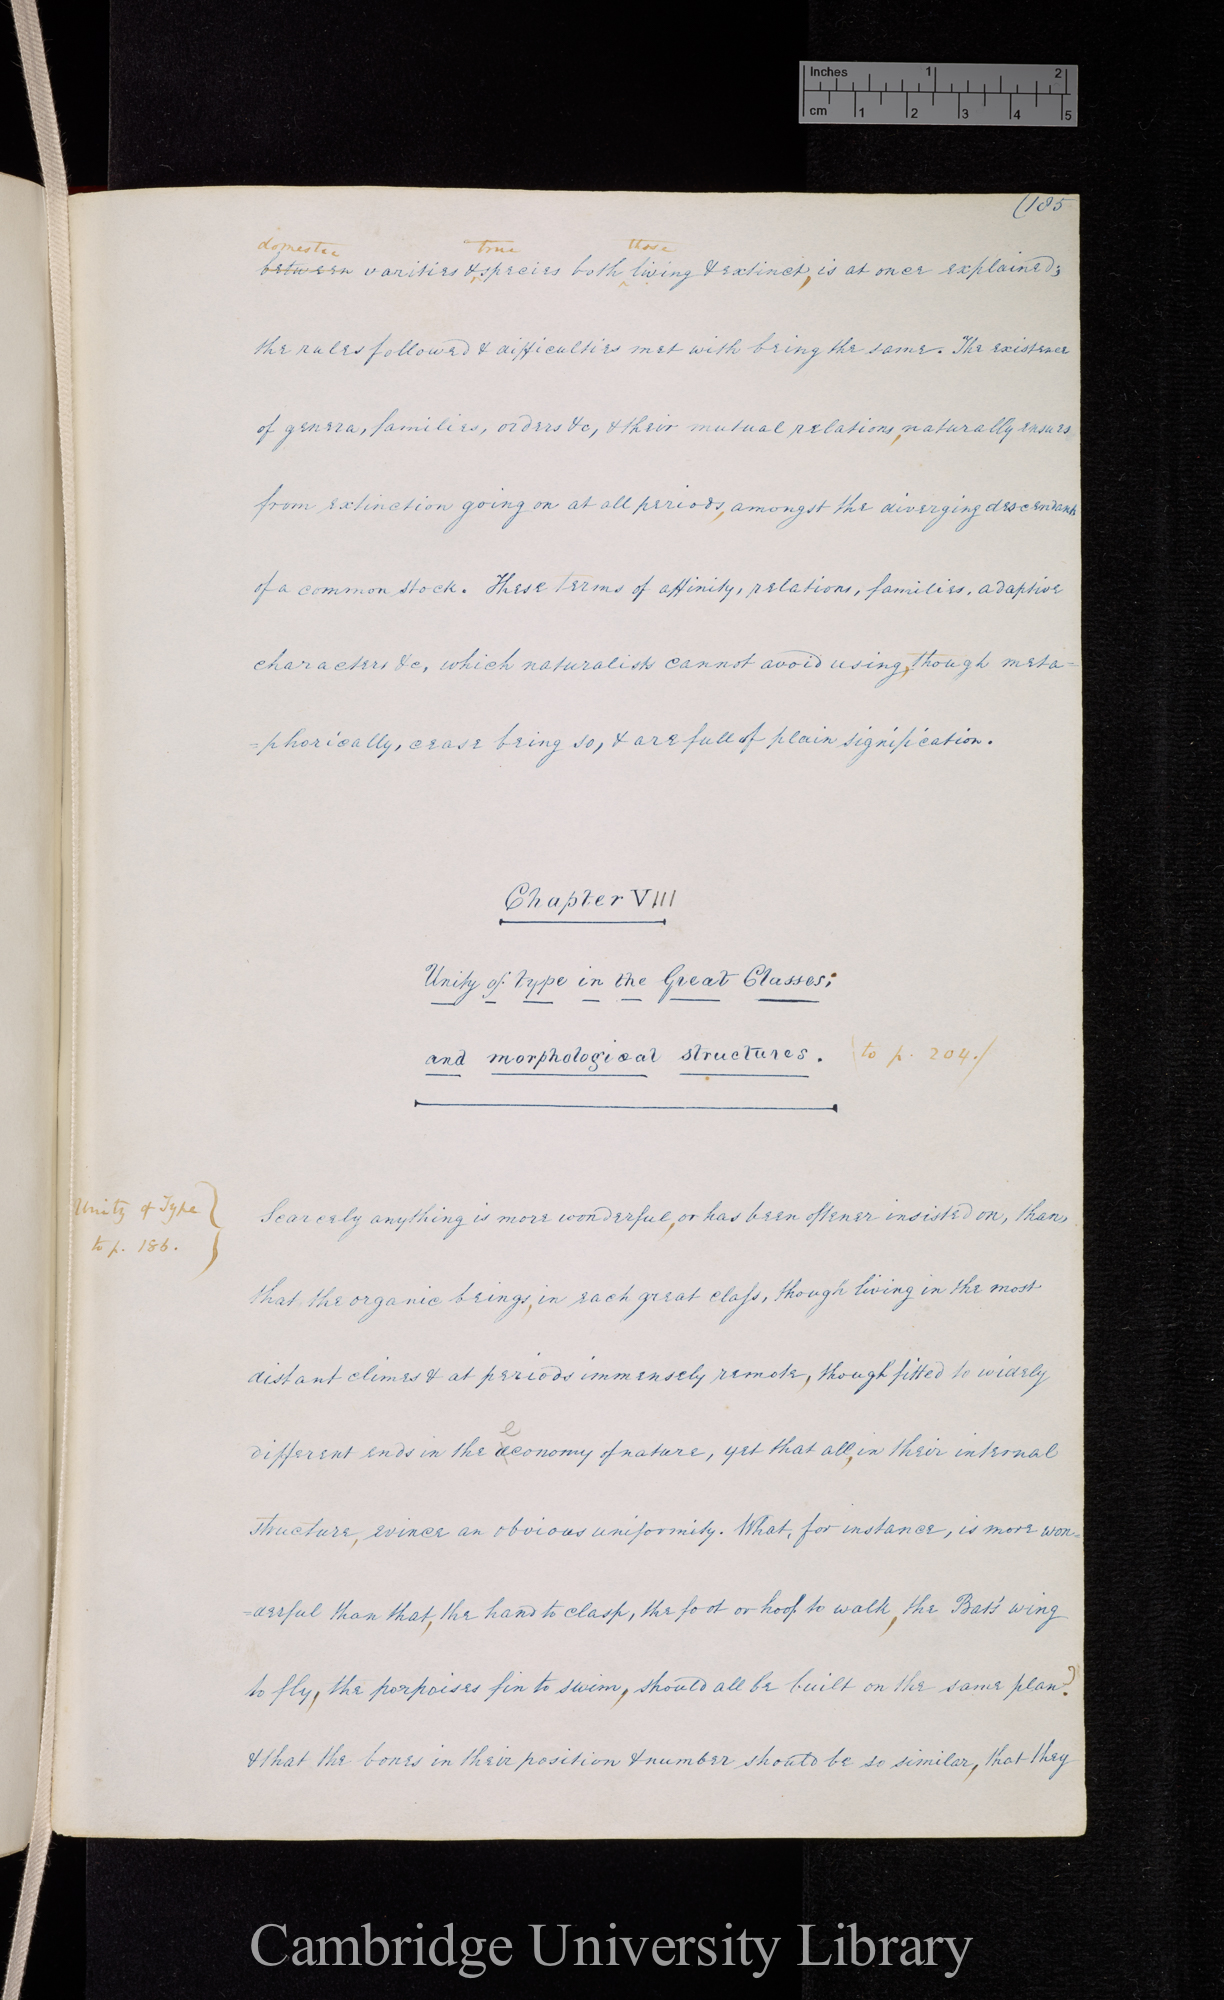 Inches 1 2
cm 1 2 3 4 5
(185
domestic true those
between varities & species both living & extinct, is at once explained;
the rules followed & difficulties met with being the same. The existence
of genera, families, orders &c, & their mutual relations, naturally ensues
from extinction going on at all periods, amongst the diverging descendants
of a common stock. These terms of affinity, relations, families, adaptive
characters &c, which naturalists cannot avoid using, though meta=
=phorically, cease being so, & are full of plain signification.
Chapter VIII
Unity of type in the Great Classes;
and morphological structures. (to p. 204.)
Unity of Type
to p. 186.
Scarcely anything is more wonderful, or has been oftener insisted on, than,
that the organic beings, in each great class, though living in the most
distant climes & at periods immensely remote, though fitted to widely
e
different ends in the œconomy of nature, yet that all, in their internal
structure, evince an obvious uniformity. What, for instance, is more won=
=derful than that, the hand to clasp, the foot or hoof to walk, the Bat's wing
to fly, the porpoises fin to swim, should all be built on the same plan?
& that the bones in their position & number should be so similar, that they
Cambridge University Library